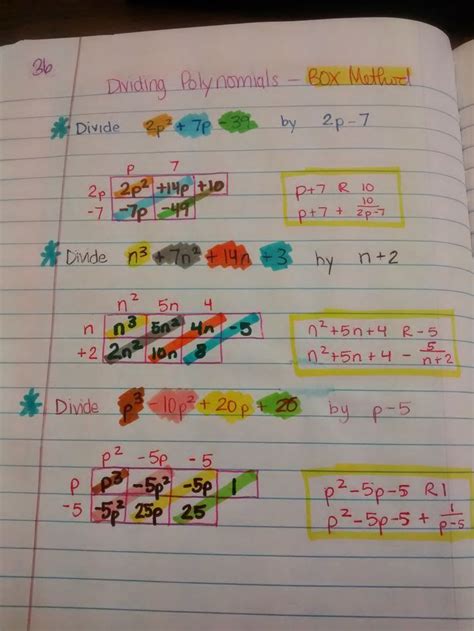 36
Dividing Polynomials - BOX Method
* Divide 2p² + 7p - 39 by 2p-7
p 7
2p 2p² +14p +10
-7 -7p -49
p+7 R 10
p+7 + 10/2p-7
* Divide n³ +7n² +14n +3 by n+2
n² 5n 4
n n³ 5n² 4n -5
+2 2n² 10n 8
n²+5n+4 R-5
n²+5n+4 - 5/n+2
* Divide p³ -10p² +20p +26 by p-5
p² -5p -5
p p³ -5p² -5p 1
-5 -5p² 25p 25
p²-5p-5 R1
p²-5p-5 + 1/p-5